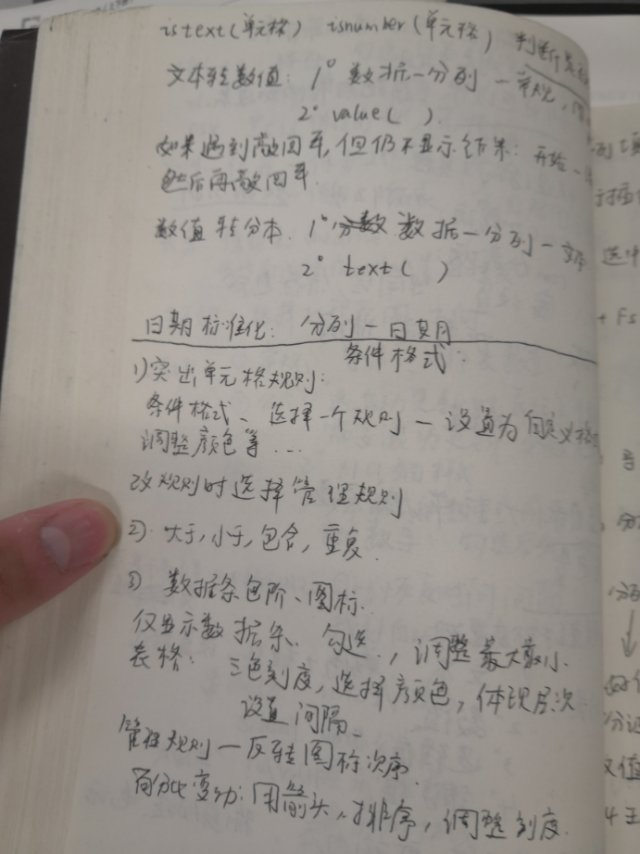 istext(单元格) isnumber(单元格) 判断是
文本转数值: 1° 数据一分列 一 常规,
2° value( ).
如果遇到敲回车,但仍不显示结果: 开始一
然后再敲回车.
数值转分本. 1° 数据一分列一文
2° text( )
日期标准化: 分列一日期
条件格式:
1)突出单元格规则:
条件格式、选择一个规则 一 设置为自定义格
调整颜色等...
改规则时选择管理规则
2). 大于,小于,包含,重复.
3) 数据条色阶、图标.
仅显示数据条. 勾选, 调整最大最小.
表格: 三色刻度,选择颜色,体现层次
设置间隔.
管理规则一反转图标次序.
百分比变动: 用箭头,排序,调整刻度.